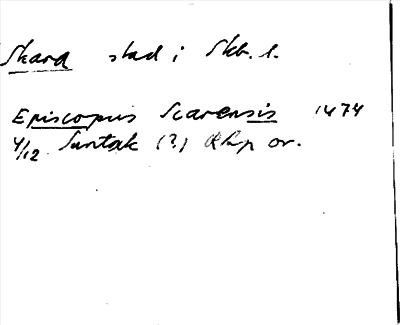 Skara stad i Skb. l.
Episcopus Scarensis 1474
4/12 Suntak (?) RAp or.